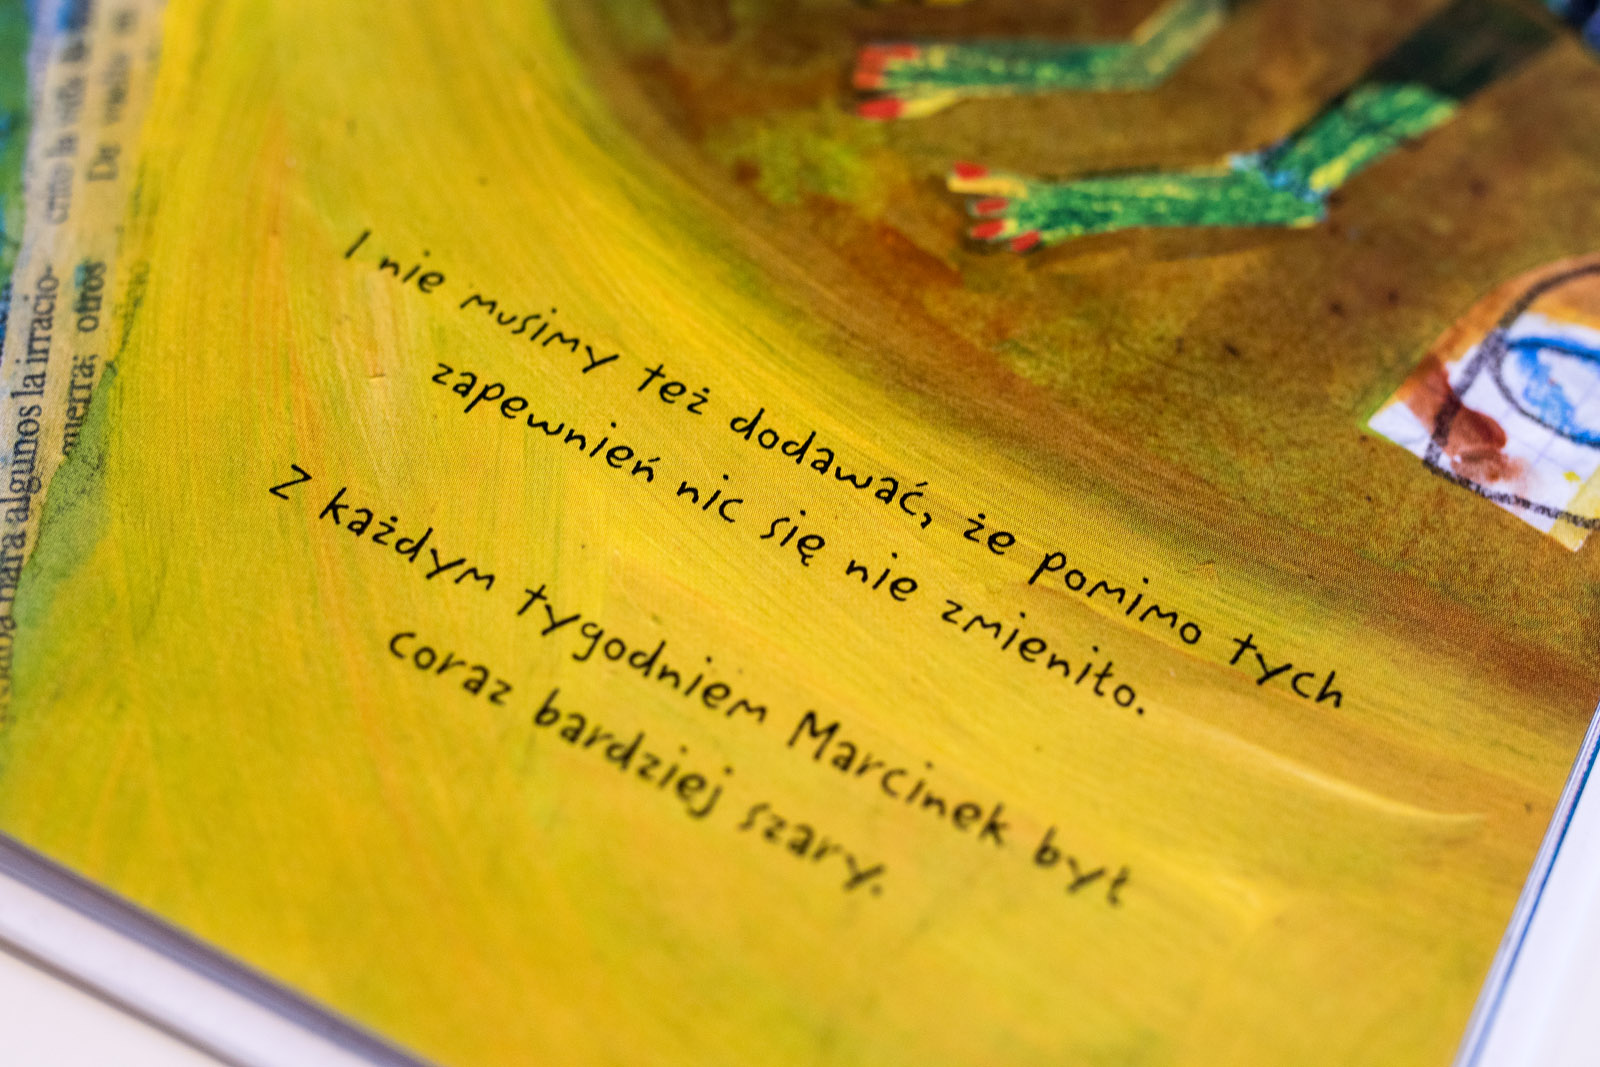 I nie musimy też dodawać, że pomimo tych
zapewnień nic się nie zmieniło.
Z każdym tygodniem Marcinek był
coraz bardziej szary.
para algunos la irracio-
otros
De
la vida